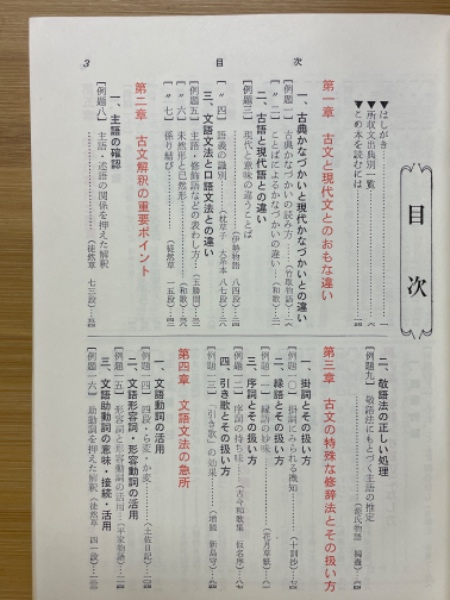 目次
▼はしがき……一
▼所収文出典別一覧……六
▼この本を読むには……一四
第一章 古文と現代文とのおもな違い
一、古典かなづかいと現代かなづかいとの違い
〔例題 一〕 古典かなづかいの読み方……(竹取物語)
〔〃 二〕 ことばによるかなづかいの違い……(和歌)
二、古語と現代語との違い
〔例題 三〕 現代と意味の違うことば……(伊勢物語 八四段)
〔〃 四〕 語義の識別……(枕草子 大系本 八七段)
三、文語文法と口語文法との違い
〔例題 五〕 主語・修飾語などの表わし方……(玉勝間)
〔〃 六〕 未然形と已然形……(和歌)
〔〃 七〕 係り結び……(徒然草 一五段)
第二章 古文解釈の重要ポイント
一、主語の確認
〔例題 八〕 主語・述語の関係を押えた解釈
……(徒然草 七三段)
二、敬語法の正しい処理
〔例題 九〕 敬語法にもとづく主語の推定
……(源氏物語 鞠蹴)
第三章 古文の特殊な修辞法とその扱い方
一、掛詞とその扱い方
〔例題 一〇〕 掛詞にみられる機知……(十訓抄)
二、縁語とその扱い方
〔例題 一一〕 縁語の妙味……(花月草紙)
三、序詞とその扱い方
〔例題 一二〕 序詞の持ち味……(古今和歌集 仮名序)
四、引き歌とその扱い方
〔例題 一三〕 「引き歌」の効果……(増鏡 新島守)
第四章 文語文法の急所
一、文語動詞の活用
〔例題 一四〕 四段・ラ変・カ変……(土佐日記)
二、文語形容詞・形容動詞の活用
〔例題 一五〕 形容詞と形容動詞の活用……(平家物語)
三、文語助動詞の意味・接続・活用
〔例題 一六〕 助動詞を押えた解釈(徒然草 四一段)
目次
3